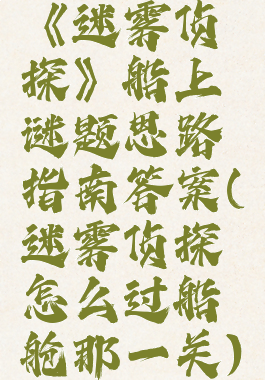 《迷雾侦
探》船上
谜题思路
指南答案(
迷雾侦探
怎么过船
舱那一关)